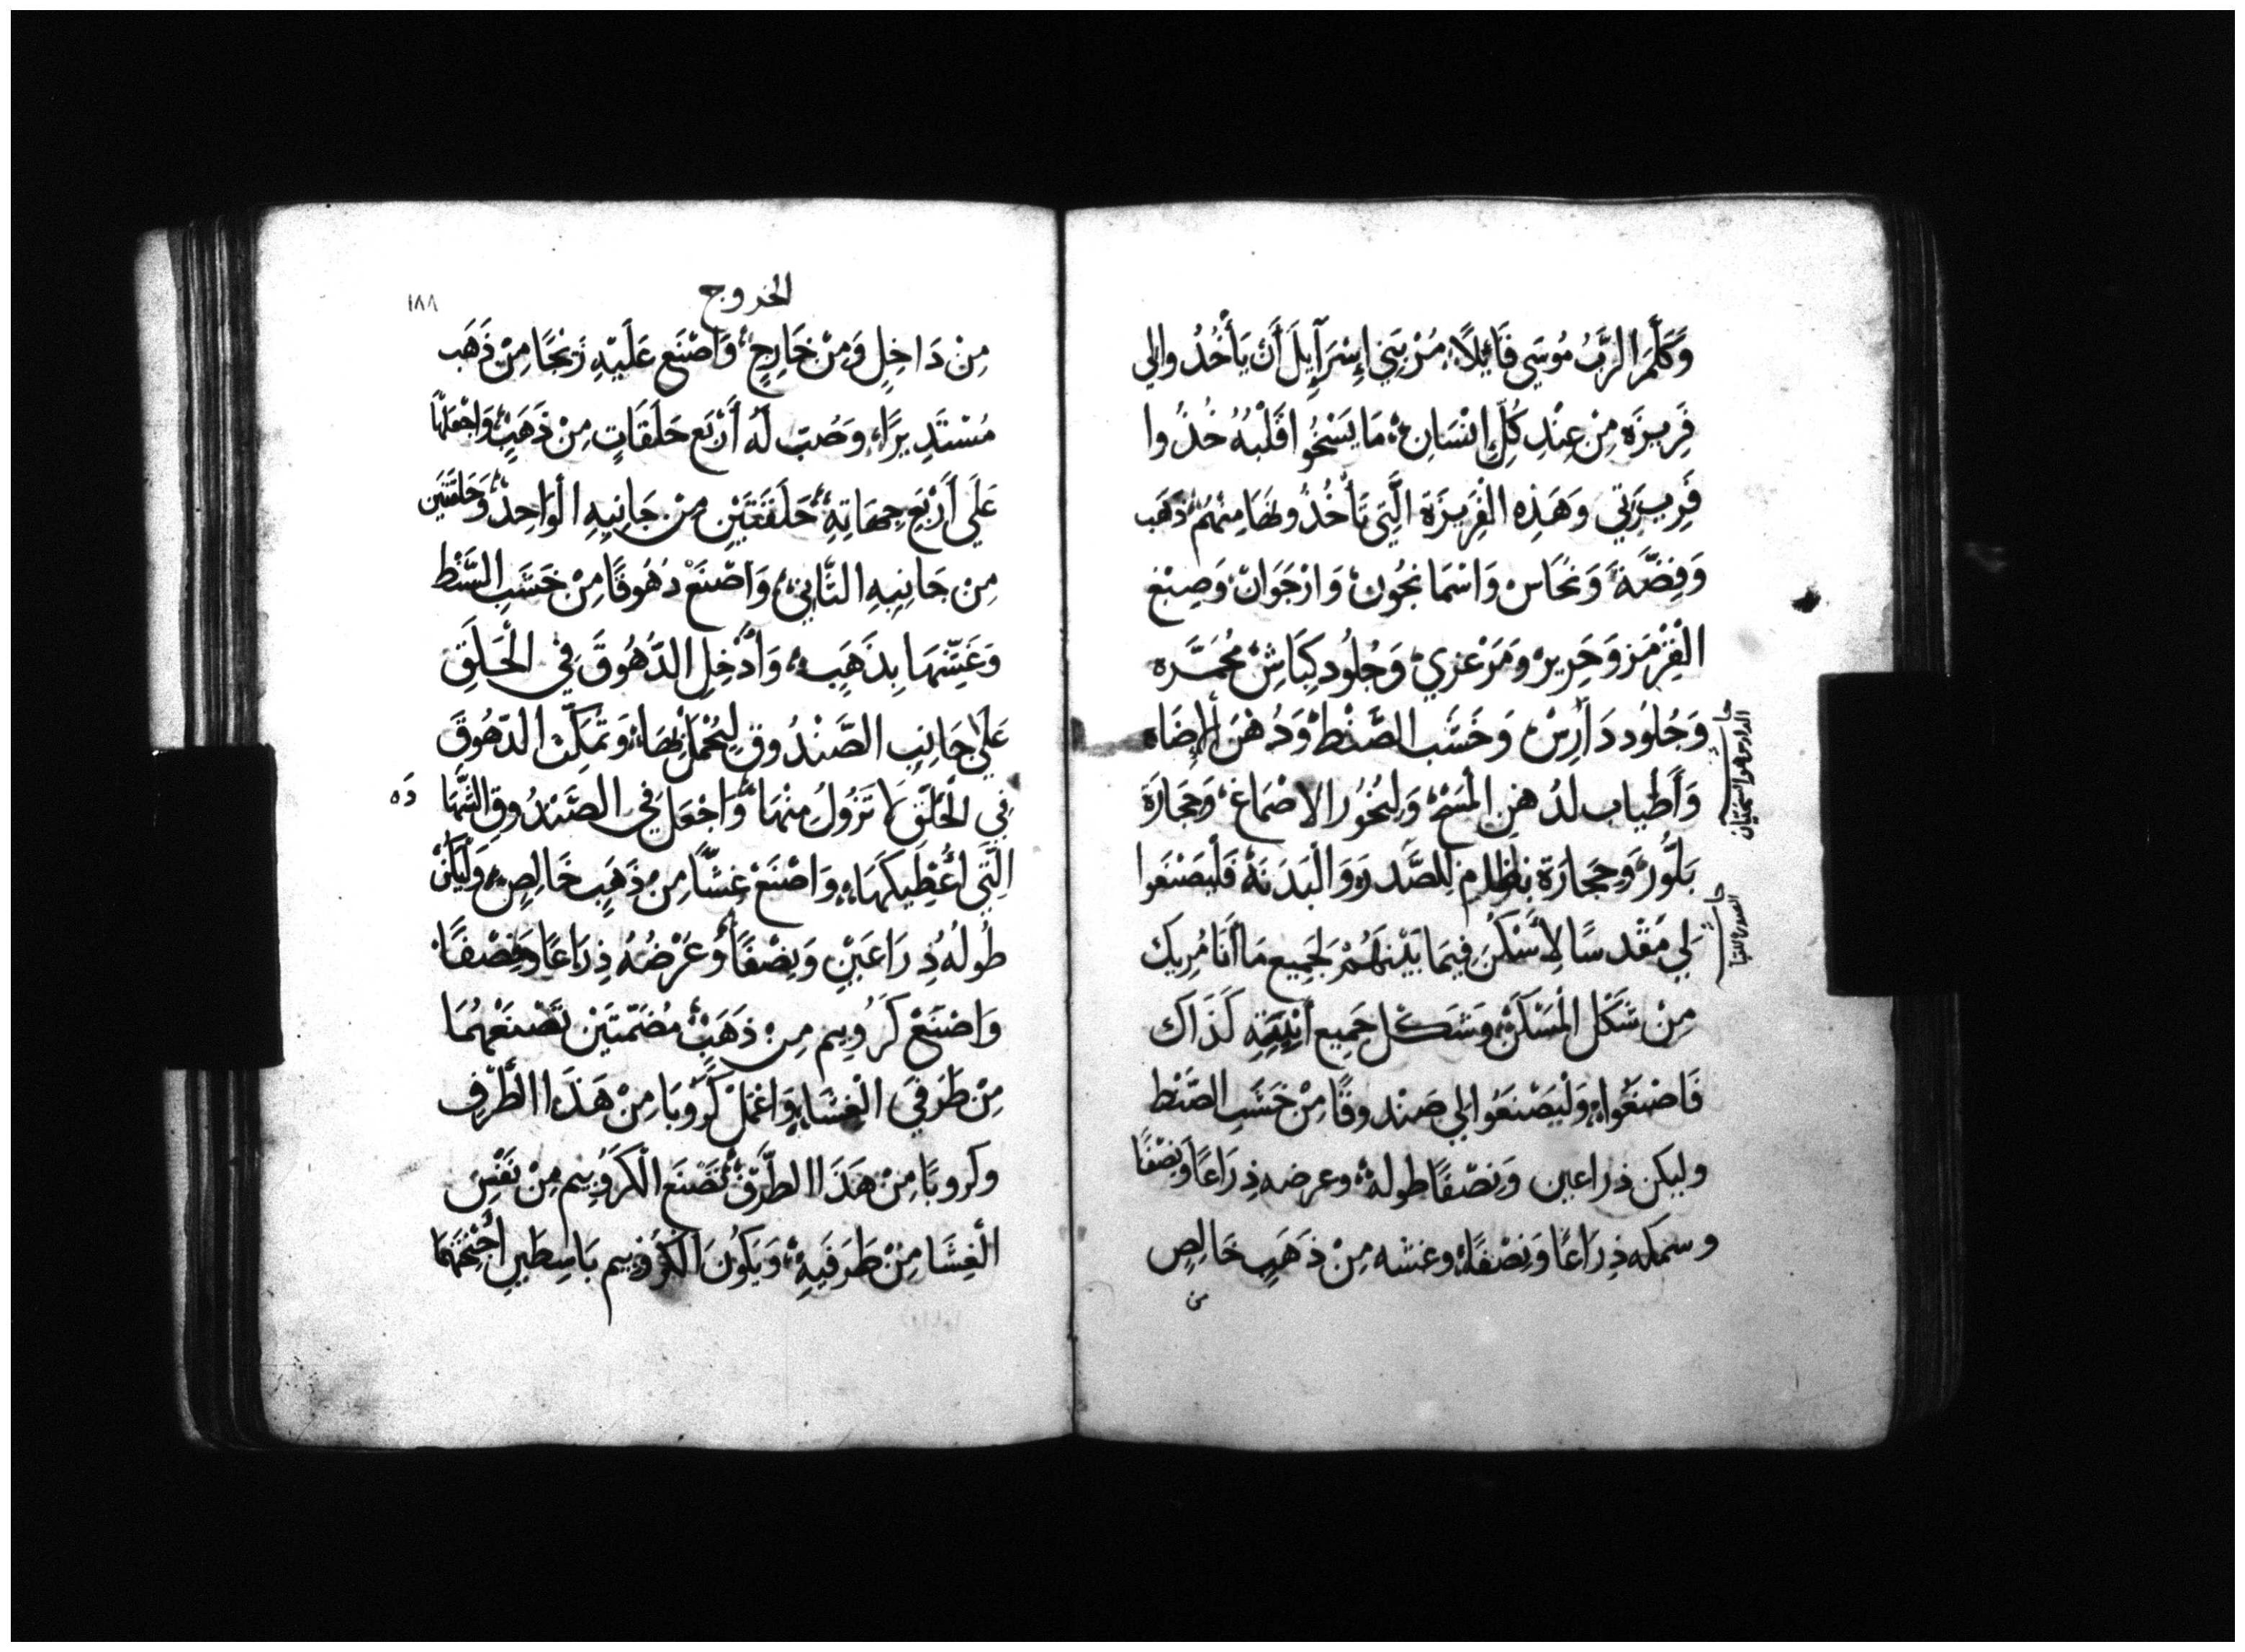 وَكَلَّمَ الرَّبُّ مُوسَي قَائِلاً مُرْ بَنِي إِسْرَآيِلَ أَنْ يَأْخُذُوا لِي
فَرِيزَه مِنْ عِنْدِ كُلِّ اِنْسَانٍ مَا يَسْخُوا قَلْبُهُ خُذُوا
فَرِيزَتِي وَهَذِه الْفَرِيزَة الَّتِي تَأْخُذُونَهَا مِنْهُمْ ذَهَب
وَفِضَّة وَنُحَاس وَاسْمَانجُون وَارْجَوَان وَصِبْغ
الْقِرْمَز وَحَرِير وَمَرْعزي وَجُلُود كِبَاش مُحَمَّرَه
وَجُلُود دَارِش وَخَشَب الصَّنْط وَدُهْنَ الإِضَاه
وَأَطْيَاب لدُهنِ الْمَسْح وَلِبخُور الاصْمَاغ وَحَجَارَة
بَلُّور وَحِجَارَة نِظَام لِلصَّدرَه وَالْبَدَنَة فَلْيَصْنَعُوا
لِي مَقْدسًا لِأَسْكُنَ فِيمَا بَيْنَهُمْ لِجَمِيعِ مَا اَنَا مُرِيك
مِنْ شَكْل الْمَسْكَن وَشَكْل جَمِيع أَنِيَتِهِ كَذَاك
فَاصْنَعُوا وَلْيَصْنَعُوا لِي صَنْدوقًا مِنْ خَشَب الصَّنْط
وليكن ذراعين وَنصْفًا طوله وعرضه ذِرَاعًا وَنِصْفًا
وسمكه ذِرَاعًا وَنِصْفًا وغشه مِنْ ذَهَبٍ خَالِصٍ
من
الدارس هو السختيان
الخروج
١٨٨
مِنْ دَاخِلٍ وَمِنْ خَارِجٍ وَاصْنَع عَلَيْهِ زنْجًا مِنْ ذَهَب
مُسْتَدِيرًا وَصُبّ لَهُ أَرْبَع حَلَقَاتٍ مِنْ ذَهَبٍ وَاجْعَلهَا
عَلَي أَرْبَع جِهَاتِهِ حَلَقَتَيْنِ مِنْ جَانِبِهِ الْوَاحِد وَحَلقَتَين
مِن جَانِبِهِ الثَّانِي وَاصْنَعْ دهُوقًا مِنْ خَشَبِ السَّنْط
وَغَشِّهَا بِذَهَبٍ وَأَدْخِلِ الدّهُوقَ فِي الْحَلَقِ
عَلَي جَانِبَي الصَّنْدُوقِ لِيُحْمَلَ بِهَا وَتمْكث الدّهُوقَ
فِي الْحَلَقِ لَا تَزُولُ مِنْهَا وَاجْعَل فِي الصَّنْدُوقِ الشَّهَا
دَه
الَّتِي اُعْطِيكَهَا وَاصْنَعْ غِشًا مِنْ ذَهَبٍ خَالِصٍ وَلْيَكُنْ
طُولُهُ ذِرَاعَيْنِ وَنِصْفًا وَعُرْضُهُ ذِرَاعًا وَنِصْفًا
وَاصْنَعْ كَرُوبِيم مِن ذَهَبٍ مُصَمَّتَيْن تَصْنَعْهُمَا
مِنْ طَرَفَي الْغِشَا وَاعْمَلْ كَرُوبًا مِنْ هَذَا الطَّرف
وكروبًا مِنْ هَذَا الطَّرَف تَصْنَع الكَرُوبِيم مِنْ نَفْسِ
الْغِشَا مِنْ طَرَفَيهِ وَيَكُونَ الكَرُوبِيم بَاسِطِي أَجْنِحَتهمَا